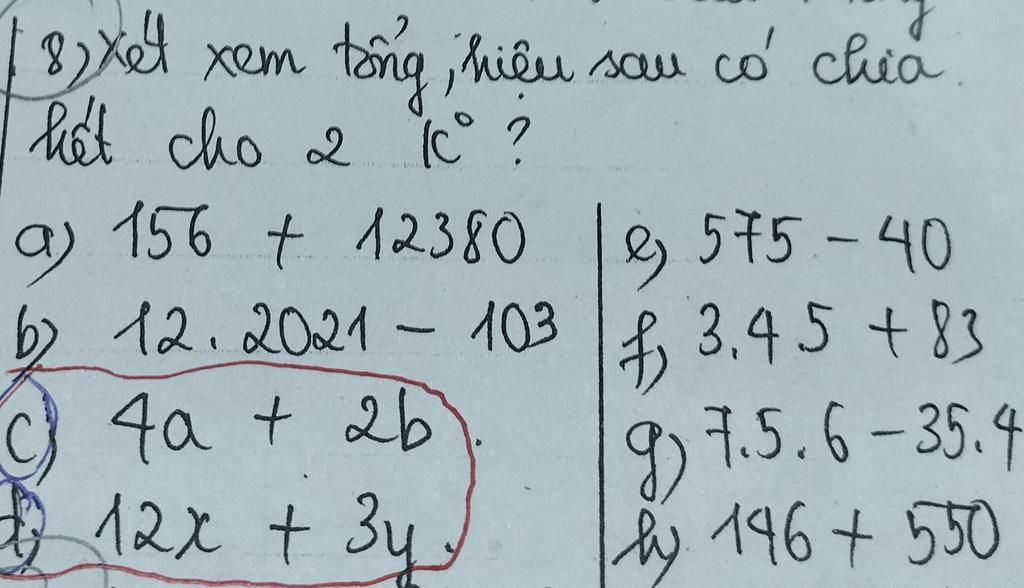 8) Xét xem tổng, hiệu sau có chia
hết cho 2 k° ?
a) 156 + 12380
b) 12.2021 - 103
c) 4a + 2b.
d) 12x + 3y.
e) 575 - 40
f) 3.45 + 83
g) 7.5.6 - 35.4
h) 146 + 550